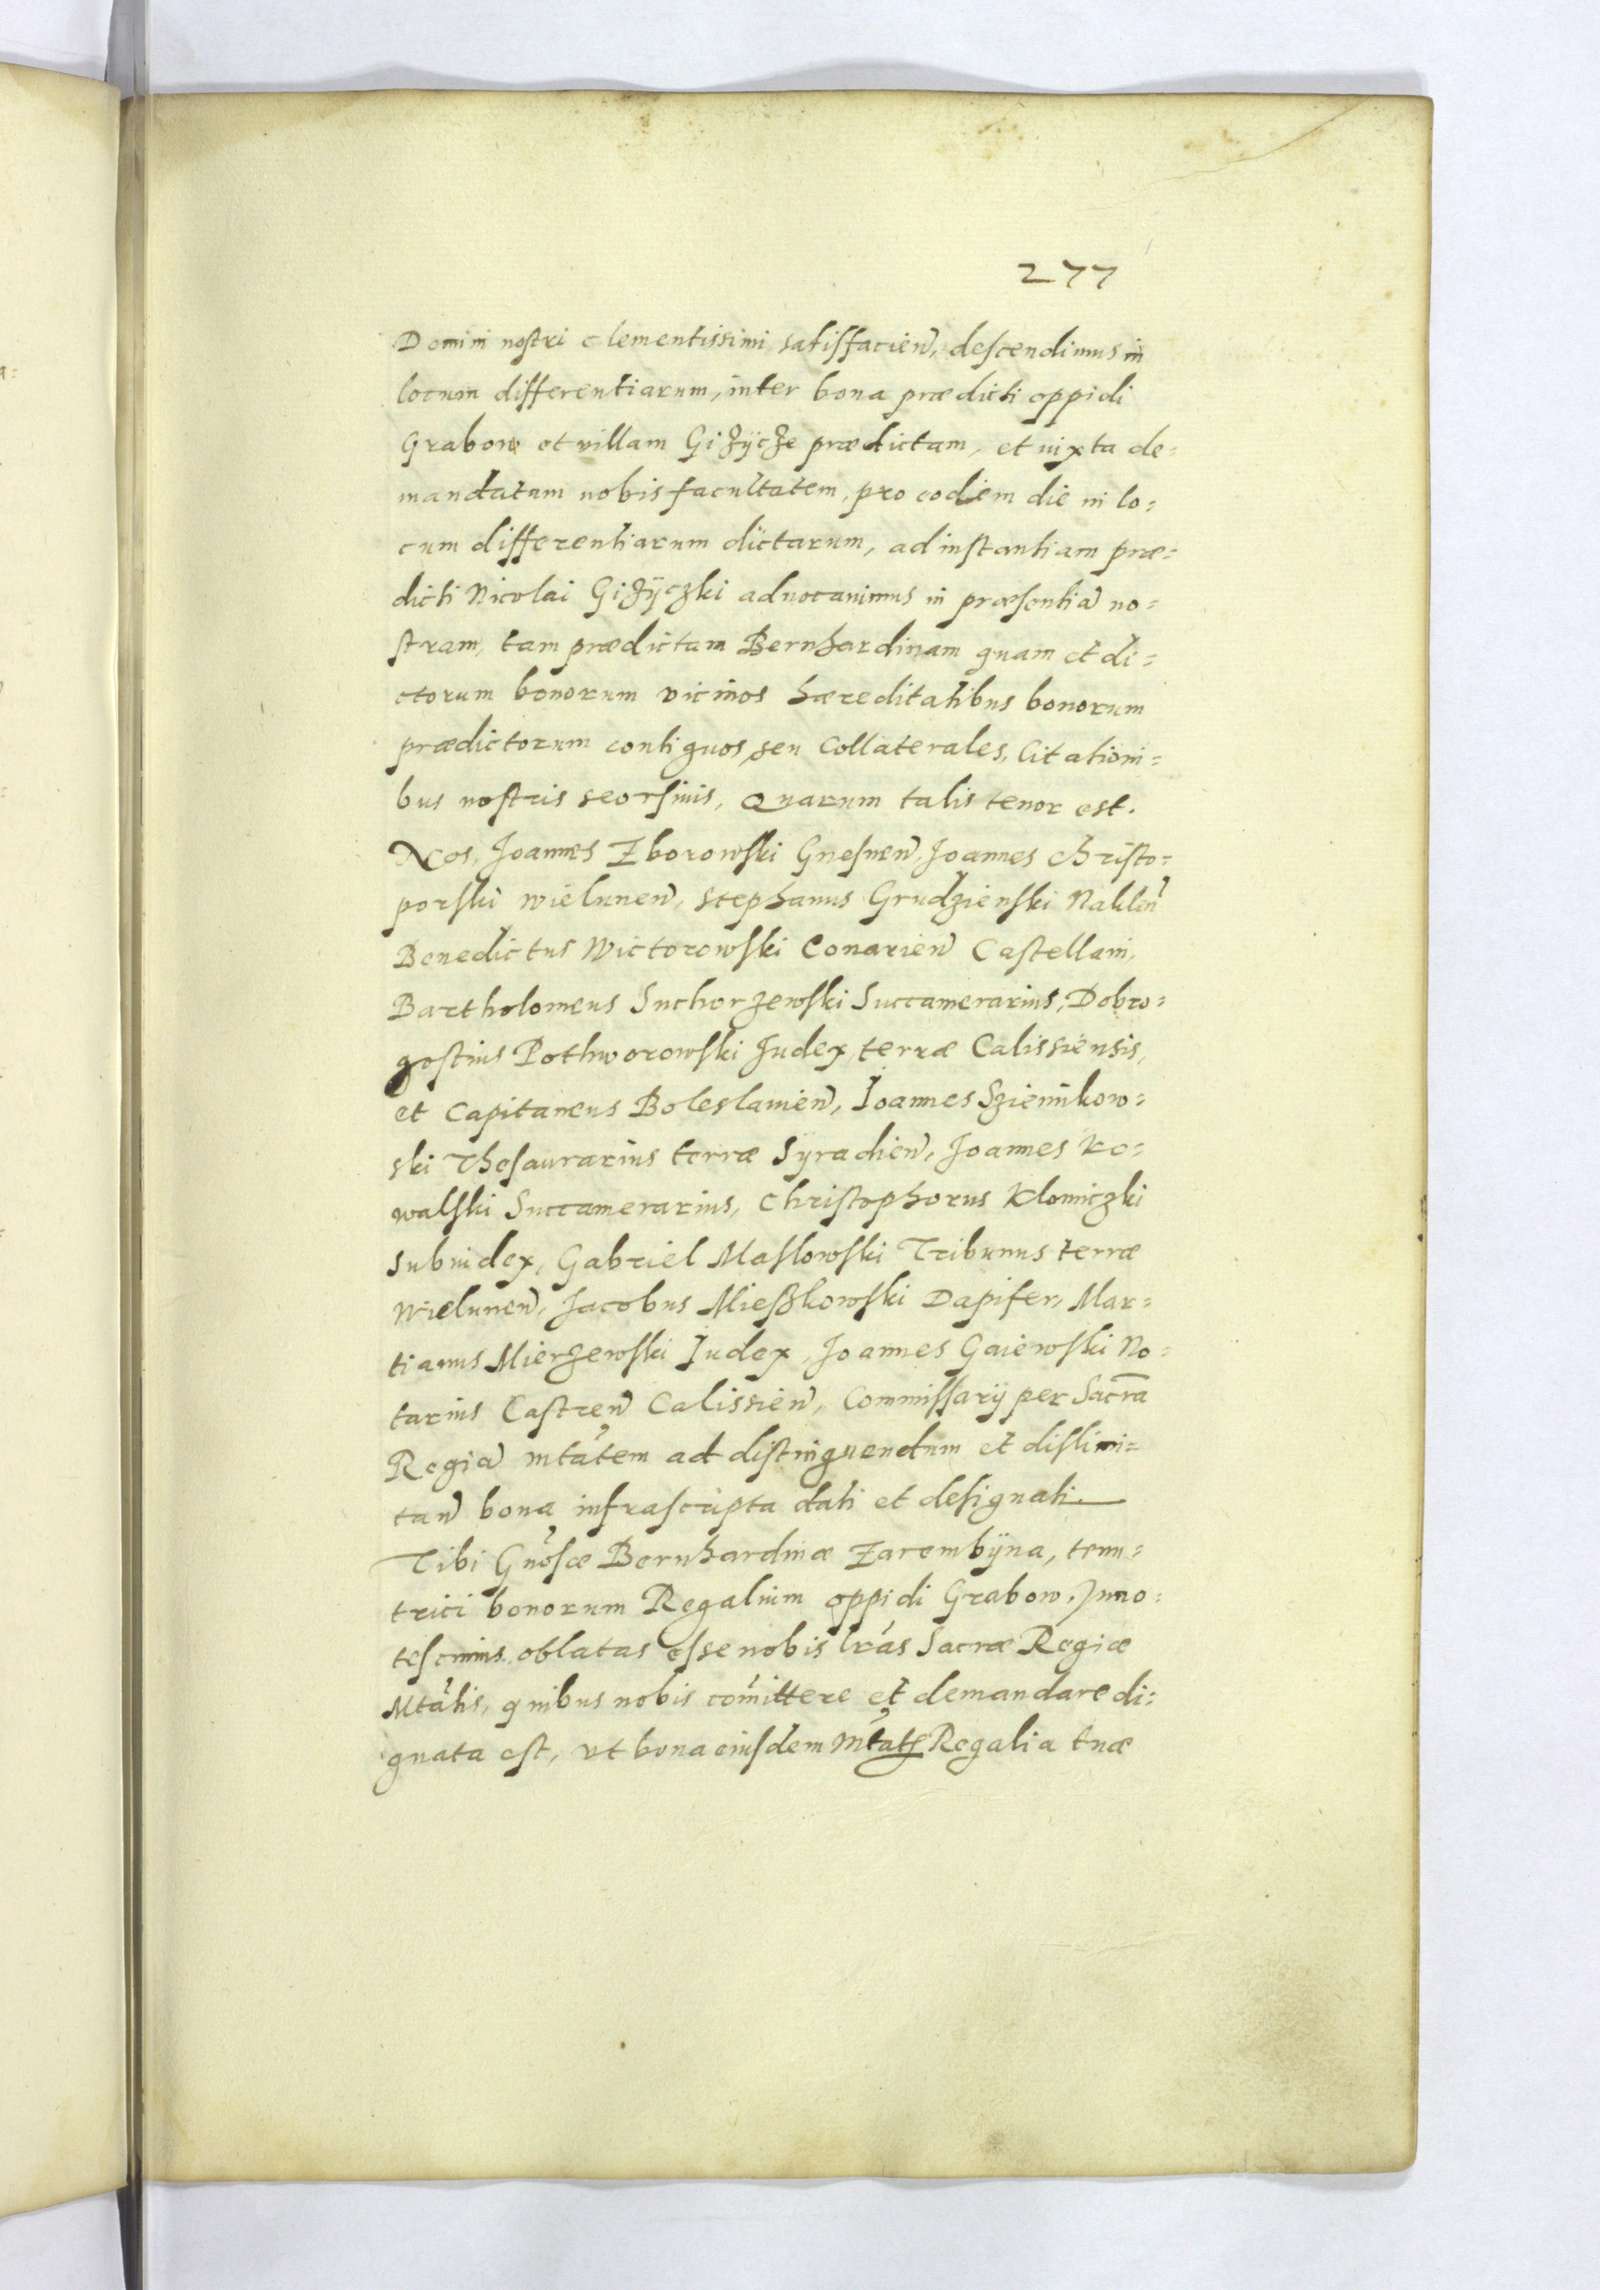 277
Domini nostri clementissimi satisfacien̄, descendimus in
locum differentiarum, inter bona prædicti oppidi
Grabow et villam Giżÿcże prædictam, et iuxta de=
mandatam nobis facultatem, pro eodem die in lo=
cum differentiarum dictarum, ad instantiam præ=
dicti Nicolai Giżÿczki aduocauimus in præsentiā no=
stram, tam prædictam Bernhardinam quam et di=
ctorum bonorum vicinos hæreditatibus bonorum
prædictorum contiguos, seu Collaterales, Citationi=
bus nostris seorsiuis, Quarum talis tenor est.
Nos, Joannes Zborowski Gnesnen̄, Joannes Christo=
porski Wielunen̄, Stephanus Grudzienski Naklen̄
Benedictus Wictorowski Conarien̄ Castellani,
Bartholomeus Suchorzewski Succamerarius, Dobro=
gostius Pothworowski Judex, terræ Calissiensis,
et Capitaneus Boleslauien̄, Joannes Szieninkow=
ski Thesaurarius terræ Syradien̄, Joannes Ko=
walski Succamerarius, Christophorus Klomiczki
Subiudex, Gabriel Maslowski Tribunus terræ
Wielunen̄, Jacobus Mießkowski Dapifer, Mar=
tianus Mierzewski Judex, Joannes Gaiewski No=
tarius Castren̄ Calissien̄, Commissarij per Sacrā
Regiā Mtātem ad distinguendum et dislimi=
tan̄ bona infrascripta dati et designati.
Tibi Gnōsæ Bernhardinæ Zarembÿna, tenu=
trici bonorum Regalium oppidi Grabow. Inno=
tescimus oblatas esse nobis lrās Sacræ Regiæ
Mtātis, quibus nobis com̄ittere et demandare di=
gnata est, vt bona eiusdem Mtātis Regalia tuæ